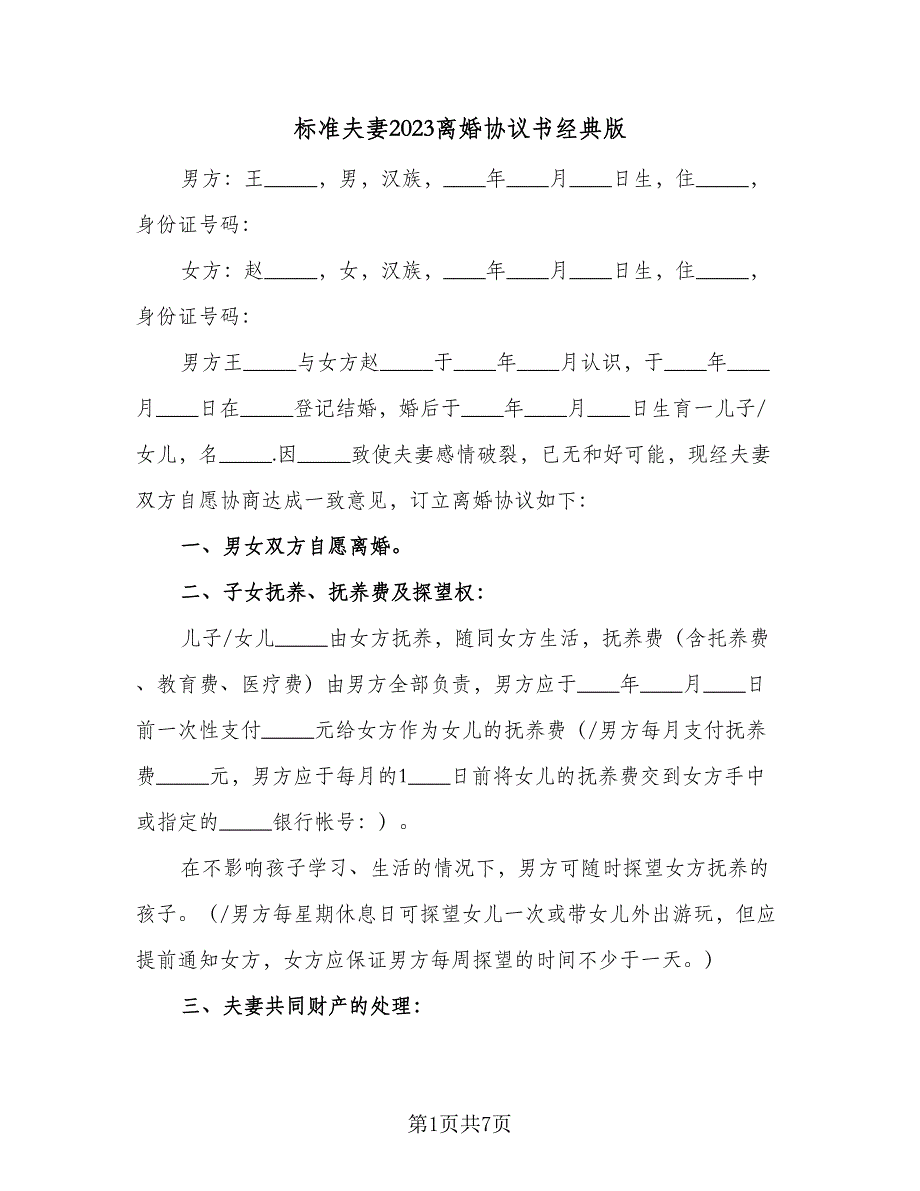 标准夫妻2023离婚协议书经典版
男方：王_____，男，汉族，____年____月____日生，住_____，
身份证号码：
女方：赵_____，女，汉族，____年____月____日生，住_____，
身份证号码：
男方王_____与女方赵_____于____年____月认识，于____年____
月____日在_____登记结婚，婚后于____年____月____日生育一儿子/
女儿，名_____.因_____致使夫妻感情破裂，已无和好可能，现经夫妻
双方自愿协商达成一致意见，订立离婚协议如下：
一、男女双方自愿离婚。
二、子女抚养、抚养费及探望权：
儿子/女儿_____由女方抚养，随同女方生活，抚养费（含托养费
、教育费、医疗费）由男方全部负责，男方应于____年____月____日
前一次性支付_____元给女方作为女儿的抚养费（/男方每月支付抚养
费_____元，男方应于每月的1____日前将女儿的抚养费交到女方手中
或指定的_____银行帐号：）。
在不影响孩子学习、生活的情况下，男方可随时探望女方抚养的
孩子。（/男方每星期休息日可探望女儿一次或带女儿外出游玩，但应
提前通知女方，女方应保证男方每周探望的时间不少于一天。）
三、夫妻共同财产的处理：
第1页共7页